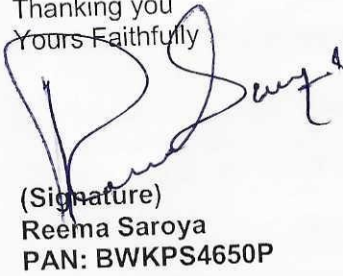 Thanking you
Yours Faithfully
(Signature)
Reema Saroya
PAN: BWKPS4650P